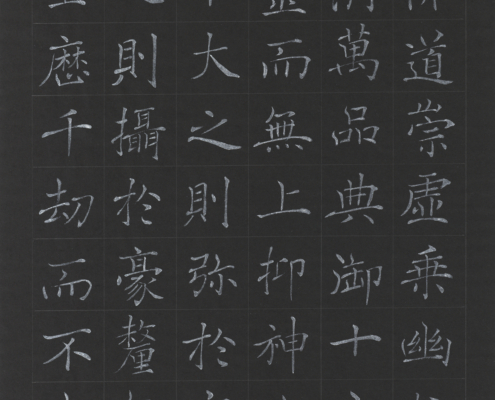 道崇虚乗幽
萬品典御十
而無上抑神
大之則弥於
則攝於豪釐
歷千劫而不